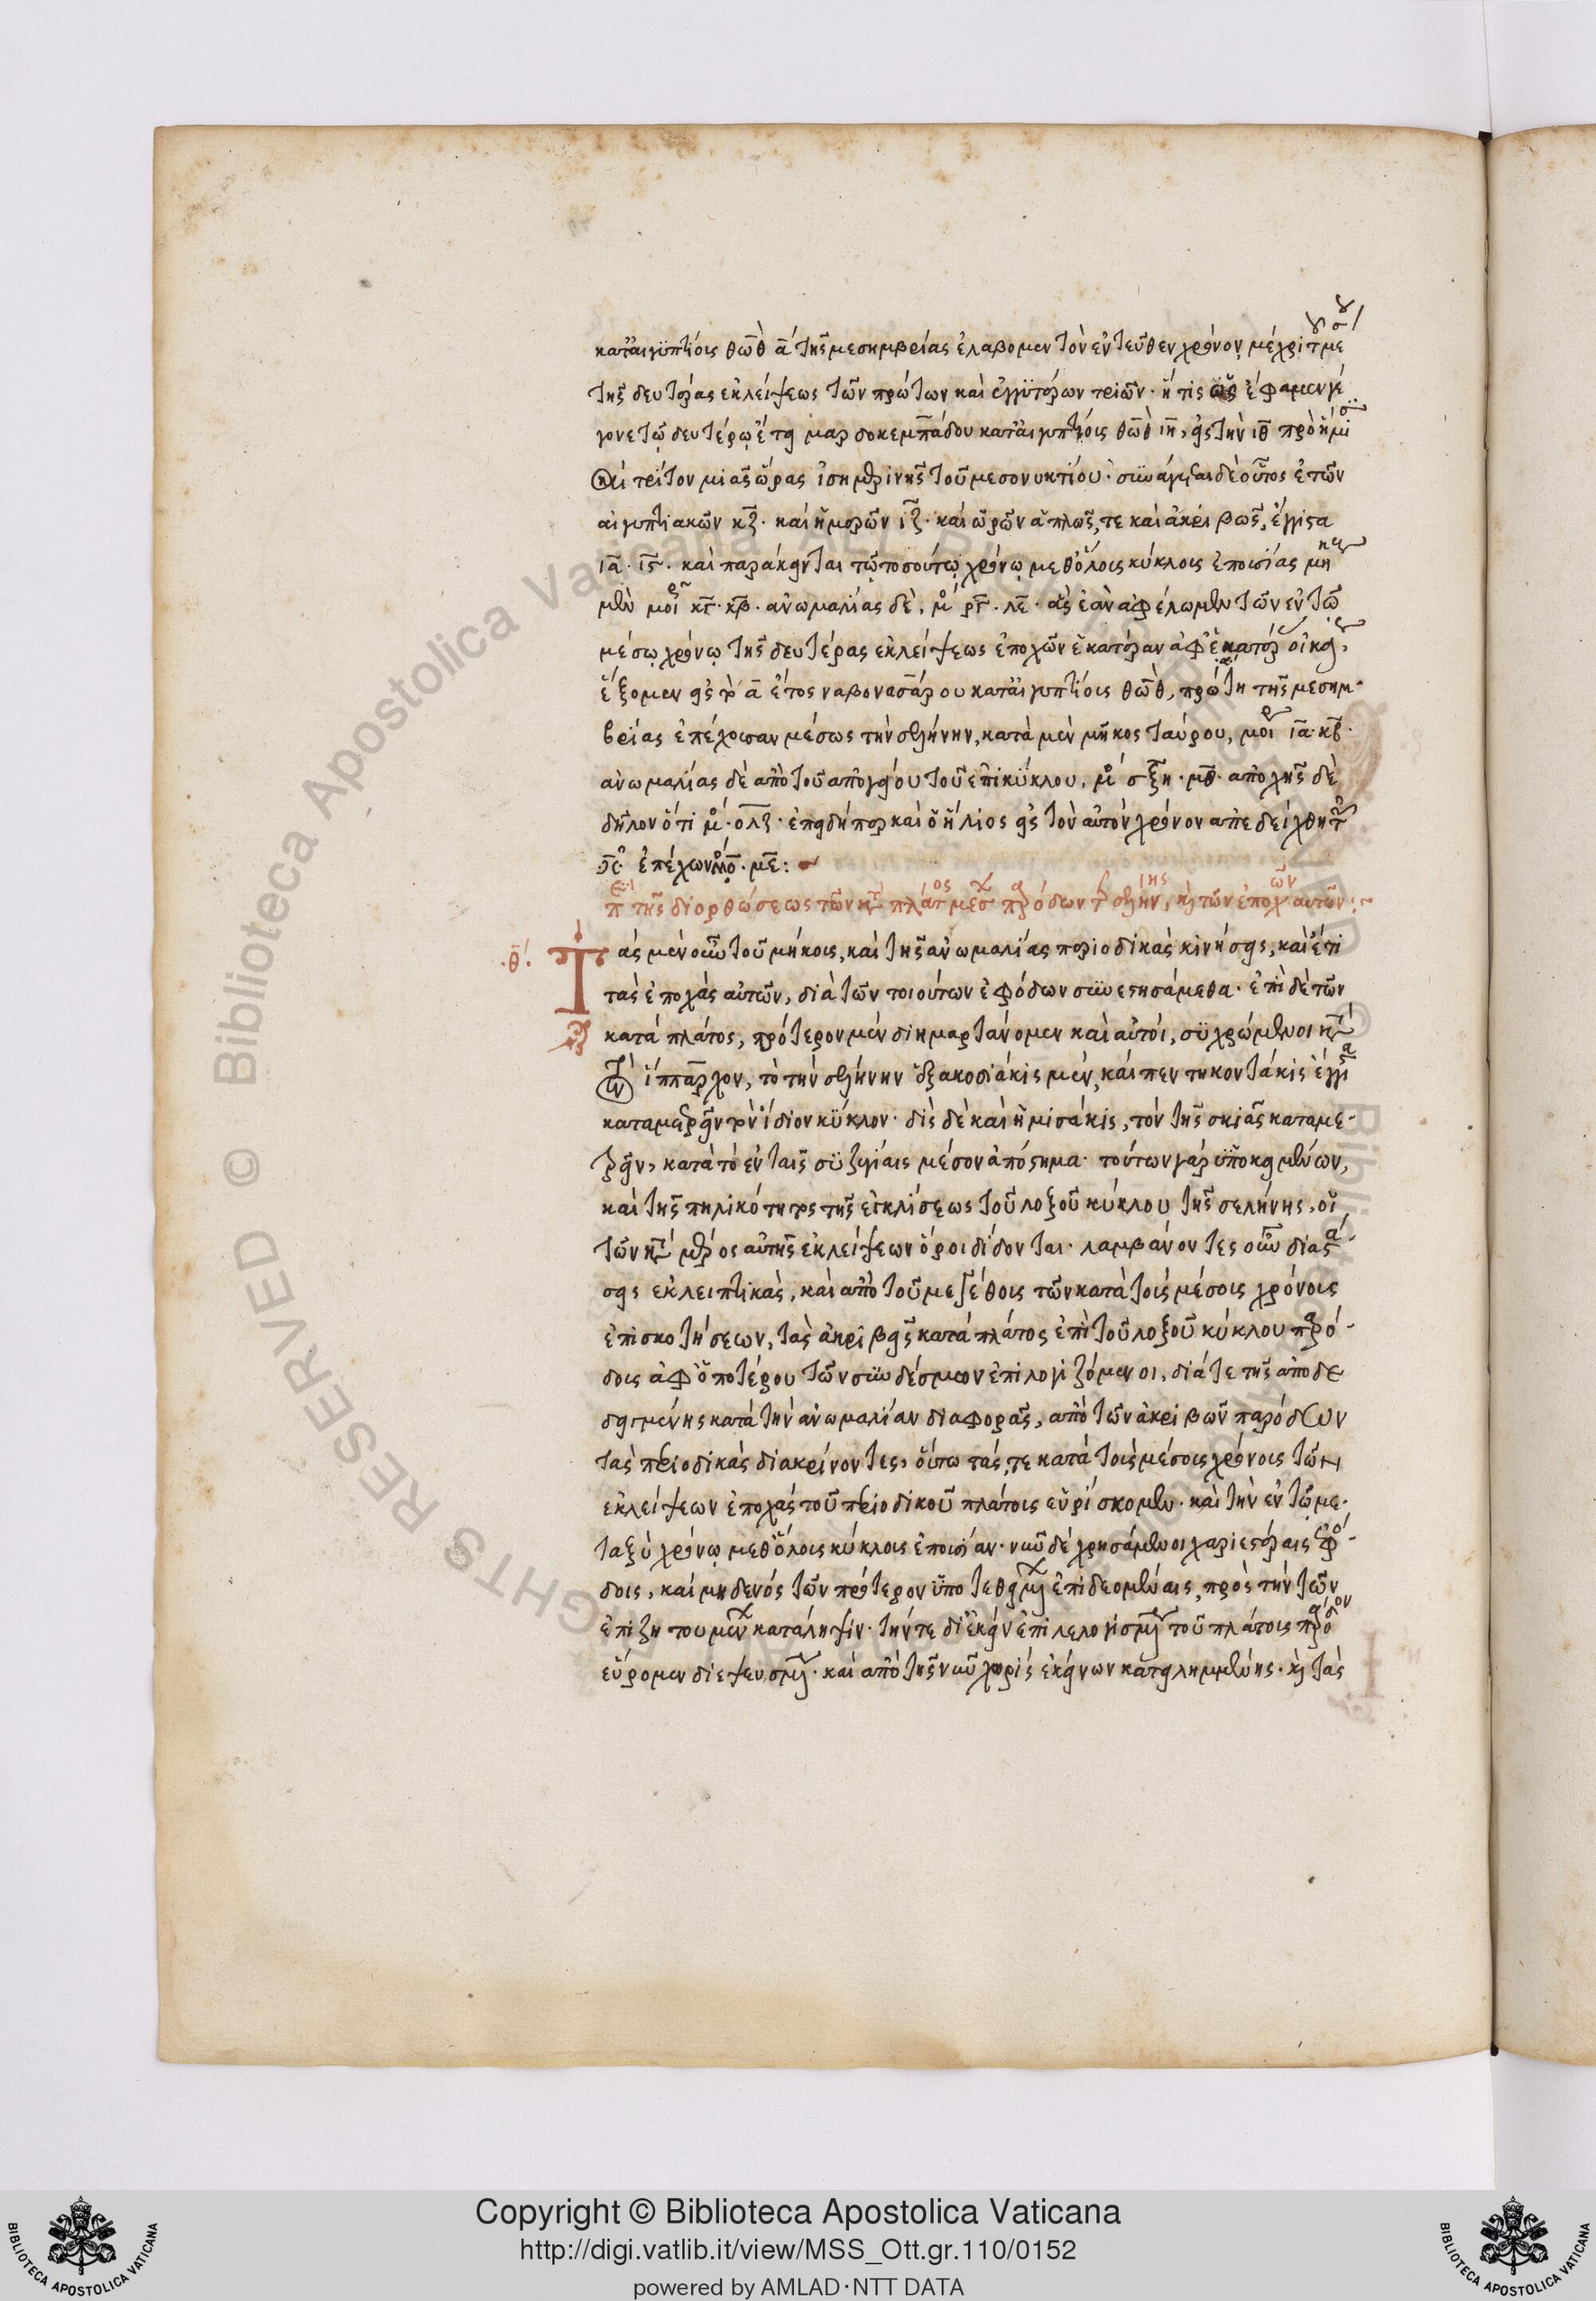 κατ' αἰγυπτίους θὼθ α τῆς μεσημβρίας ἐλάβομεν τὸν ἐντεῦθεν χρόνον μέχρι τοῦ μέσου
τῆς δευτέρας ἐκλείψεως τῶν πρώτων καὶ ἐγγυτέρων τριῶν· ἥτις ὡς ἔφαμεν γέ
γονε τῷ δευτέρῳ ἔτει μαρδοκεμπάδου κατ' αἰγυπτίους θὼθ ιη, εἰς τὴν ιθ πρὸ ἡμί
σους καὶ τρίτου μιᾶς ὥρας ἰσημερινῆς τοῦ μεσονυκτίου· συνάγει δὲ οὗτος ἐτῶν
αἰγυπτιακῶν κζ· καὶ ἡμερῶν ιζ· καὶ ὡρῶν ἁπλῶς τε καὶ ἀκριβῶς, ἔγγιστα
ια· ις· καὶ παράκεινται τῷ τοσούτῳ χρόνῳ μεθ' ὅλους κύκλους ἐπουσίας μήκους
μὲν μοῖραι ρκγ· κβ· ἀνωμαλίας δὲ, μοι ργ· λε· ἃς ἐὰν ἀφέλωμεν τῶν ἐν τῷ
μέσῳ χρόνῳ τῆς δευτέρας ἐκλείψεως ἐποχῶν ἑκατέραν ἀφ' ἑκατέρας οἰκείως,
ἕξομεν εἰς τὸ α ἔτος ναβονασσάρου κατ' αἰγυπτίους θὼθ, πρώτη τῆς μεσημ
βρίας ἐπέχουσαν μέσως τὴν σελήνην, κατὰ μὲν μῆκος ταύρου, μοίρας ια· κβ·
ἀνωμαλίας δὲ ἀπὸ τοῦ ἀπογείου τοῦ ἐπικύκλου, μοι σξη· μθ· ἀποχῆς δὲ
δῆλον ὅτι μοι· ολζ· ἐπειδήπερ καὶ ὁ ἥλιος εἰς τὸν αὐτὸν χρόνον ἀπεδείχθη τῶν
ἐπέχων μοι ο· με:
περὶ τῆς διορθώσεως τῶν κατὰ πλάτος μέσων παρόδων τῆς σελήνης, καὶ τῶν ἐποχῶν αὐτῶν:
·θ· Τὰς μὲν οὖν τοῦ μήκους, καὶ τῆς ἀνωμαλίας περιοδικὰς κινήσεις, καὶ ἔτι
τὰς ἐποχὰς αὐτῶν, διὰ τῶν τοιούτων ἐφόδων συνεστησάμεθα· ἐπὶ δὲ τῶν
κατὰ πλάτος, πρότερον μὲν διημαρτάνομεν καὶ αὐτοί, συγχρώμενοι κατὰ
τὸν ἵππαρχον, τὸ τὴν σελήνην ἑξακοσιάκις μὲν, καὶ πεντηκοντάκις ἔγγιστα
καταμετρεῖν τὸν ἴδιον κύκλον· δὶς δὲ καὶ ἡμισάκις, τὸν τῆς σκιᾶς καταμε
τρεῖν, κατὰ τὸ ἐν ταῖς συζυγίαις μέσον ἀπόστημα· τούτων γὰρ ὑποκειμένων,
καὶ τῆς πηλικότητος τῆς ἐγκλίσεως τοῦ λοξοῦ κύκλου τῆς σελήνης, οἱ
τῶν κατὰ μέρος αὐτῆς ἐκλείψεων ὅροι δίδονται· λαμβάνοντες οὖν διαστά
σεις ἐκλειπτικὰς, καὶ ἀπὸ τοῦ μεγέθους τῶν κατὰ τοὺς μέσους χρόνους
ἐπισκοτήσεων, τὰς ἀκριβεῖς κατὰ πλάτος ἐπὶ τοῦ λοξοῦ κύκλου παρό
δους ἀφ' ὁποτέρου τῶν συνδέσμων ἐπιλογιζόμενοι, διά τε τῆς ἀποδε
δειγμένης κατὰ τὴν ἀνωμαλίαν διαφορᾶς, ἀπὸ τῶν ἀκριβῶν παρόδων
τὰς περιοδικὰς διακρίνοντες, οὕτω τάς τε κατὰ τοὺς μέσους χρόνους τῶν
ἐκλείψεων ἐποχὰς τοῦ περιοδικοῦ πλάτους εὑρίσκομεν· καὶ τὴν ἐν τῷ με
ταξὺ χρόνῳ μεθ' ὅλους κύκλους ἐπουσίαν· νῦν δὲ χρησάμενοι χαριεστέραις ἐφό
δοις, καὶ μηδενὸς τῶν πρότερον ὑποτεθειμένων ἐπιδεομέναις, πρὸς τὴν τῶν
ἐπιζητουμένων κατάληψιν· τήν τε δι' ἐκείνων ἐπιλελογισμένην τοῦ πλάτους πάροδον
εὕρομεν διεψευσμένην· καὶ ἀπὸ τῆς νῦν χωρὶς ἐκείνων κατειλημμένης· καὶ τὰς
Copyright © Biblioteca Apostolica Vaticana
http://digi.vatlib.it/view/MSS_Ott.gr.110/0152
powered by AMLAD·NTT DATA